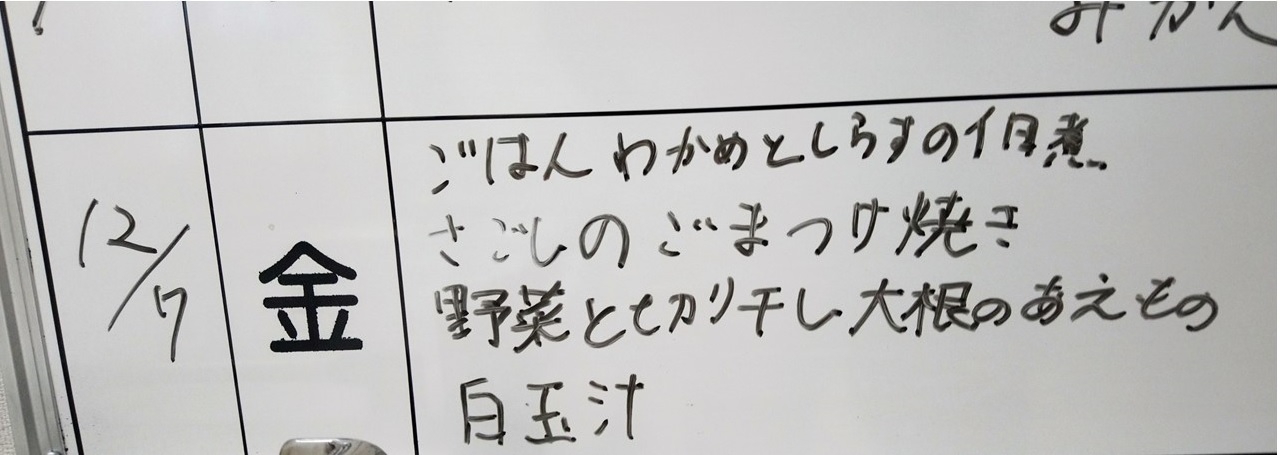 みかん
12/7 金
ごはん わかめとしらすの佃煮
さごしのごまつけ焼き
野菜と切り干し大根のあえもの
白玉汁